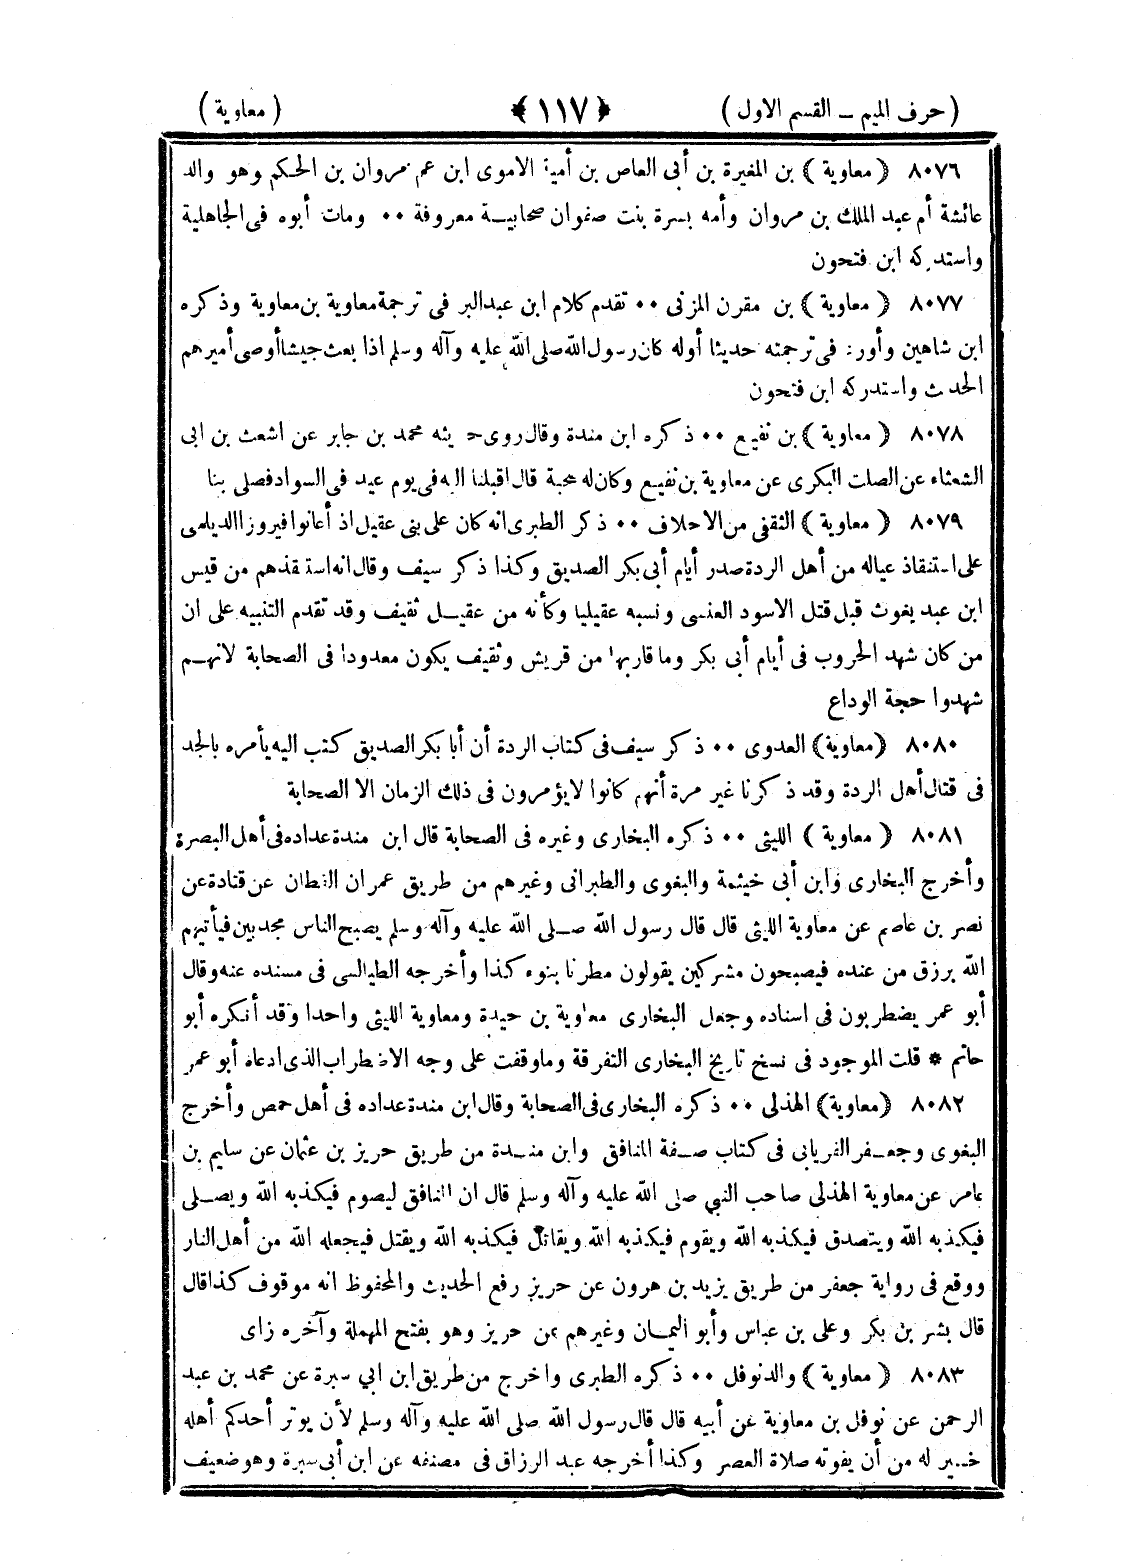 ( حرف الميم – القسم الاول )
﴿ ١١٧ ﴾
( معاوية )
٨٠٧٦ ( معاوية ) بن المغيرة بن أبى العاص بن أمية الاموى ابن عم مروان بن الحكم وهو والد
عائشة أم عبد الملك بن مروان وأمه بسرة بنت صفوان صحابية معروفة ٠٠ ومات أبوه فى الجاهلية
واستدركه ابن فتحون
٨٠٧٧ ( معاوية ) بن مقرن المزنى ٠٠ تقدم كلام ابن عبدالبر فى ترجمة معاوية بن معاوية وذكره
ابن شاهين وأورد فى ترجمته حديثا أوله كان رسول الله صلى الله عليه وآله وسلم اذا بعث جيشا أوصى أميرهم
الحديث واستدركه ابن فتحون
٨٠٧٨ ( معاوية ) بن نفيع ٠٠ ذكره ابن مندة وقال روى حديثه محمد بن جابر عن اشعث بن ابى
الشعثاء عن الصلت البكرى عن معاوية بن نفيع وكان له صحبة قال اقبلنا اليه فى يوم عيد فى السواد فصلى بنا
٨٠٧٩ ( معاوية ) الثقفى من الاحلاف ٠٠ ذكر الطبرى انه كان على بنى عقيل اذ أعانوا فيروزا الديلمى
على استنقاذ عياله من أهل الردة صدر أيام أبى بكر الصديق وكذا ذكر سيف وقال انه استنقذهم من قيس
ابن عبد يغوث قبل قتل الاسود العنسى ونسبه عقيليا وكأنه من عقيل ثقيف وقد تقدم التنبيه على ان
من كان شهد الحروب فى أيام أبى بكر وما قاربها من قريش وثقيف يكون معدودا فى الصحابة لانهم
شهدوا حجة الوداع
٨٠٨٠ ( معاوية ) العدوى ٠٠ ذكر سيف فى كتاب الردة أن أبا بكر الصديق كتب اليه يأمره بالجد
فى قتال أهل الردة وقد ذكرنا غير مرة أنهم كانوا لا يؤمرون فى ذلك الزمان الا الصحابة
٨٠٨١ ( معاوية ) الليثى ٠٠ ذكره البخارى وغيره فى الصحابة قال ابن مندة عداده فى أهل البصرة
وأخرج البخارى وابن أبى خيثمة والبغوى والطبرانى وغيرهم من طريق عمران القطان عن قتادة عن
نصر بن عاصم عن معاوية الليثى قال قال رسول الله صلى الله عليه وآله وسلم يصبح الناس مجدبين فيأتيهم
الله برزق من عنده فيصبحون مشركين يقولون مطرنا بنوء كذا وأخرجه الطيالسى فى مسنده عنه وقال
أبو عمر يضطربون فى اسناده وجعل البخارى معاوية بن حيدة ومعاوية الليثى واحدا وقد أنكره أبو
حاتم * قلت الموجود فى نسخ تاريخ البخارى التفرقة وما وقفت على وجه الاضطراب الذى ادعاه أبو عمر
٨٠٨٢ ( معاوية ) الهذلى ٠٠ ذكره البخارى فى الصحابة وقال ابن مندة عداده فى أهل حمص وأخرج
البغوى وجعفر الفريابى فى كتاب صفة المنافق وابن مندة من طريق حريز بن عثمان عن سليم بن
عامر عن معاوية الهذلى صاحب النبي صلى الله عليه وآله وسلم قال ان المنافق ليصوم فيكذبه الله ويصلى
فيكذبه الله ويتصدق فيكذبه الله ويقوم فيكذبه الله ويقاتل فيكذبه الله ويقتل فيجعله الله من أهل النار
ووقع فى رواية جعفر من طريق يزيد بن هرون عن حريز رفع الحديث والمحفوظ انه موقوف كذا قال
قال بشر بن بكر وعلى بن عباس وأبو اليمان وغيرهم عن حريز وهو بفتح المهملة وآخره زاى
٨٠٨٣ ( معاوية ) والد نوفل ٠٠ ذكره الطبرى واخرج من طريق ابن ابي سبرة عن محمد بن عبد
الرحمن عن نوفل بن معاوية عن أبيه قال قال رسول الله صلى الله عليه وآله وسلم لأن يوتر أحدكم أهله
خير له من أن يفوته صلاة العصر وكذا أخرجه عبد الرزاق فى مصنفه عن ابن أبى سبرة وهو ضعيف